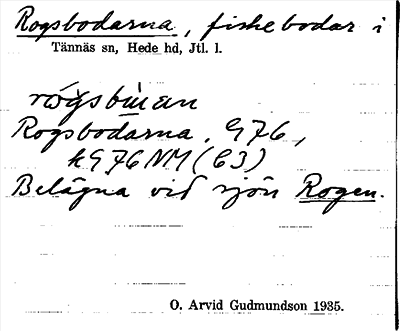 Rogsbodarna, fiskebodar i
Tännäs sn, Hede hd, Jtl. l.
Rogsbodarna, G76,
kG76NM(C3)
Belägna vid sjön Rogen.
O. Arvid Gudmundson 1935.